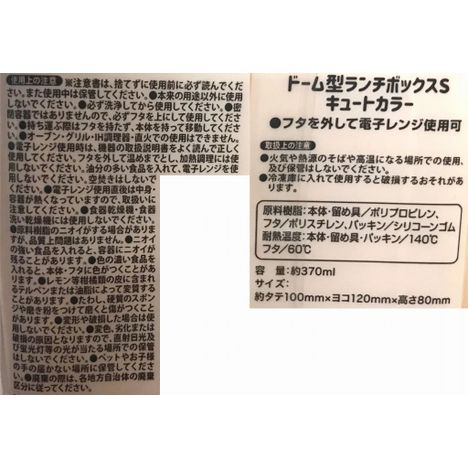 使用上の注意 ※注意書は、捨てずに使用前に必ず読んでくだ
さい。また使用中は保管してください。●本来の用途以外に使用
しないでください。●必ず洗浄してから使用してください。●密
閉容器ではありませんので、必ずフタを上にして使用してくださ
い。●持ち運ぶ際はフタを持たず、本体を持って移動してください。
●オーブン・グリル・IH調理器・直火での使用はできません。
●電子レンジ使用時は、機器の取扱説明書をよく読んで正しく
使用してください。フタを外して温めまでとし、加熱調理には使
用しないでください。油分の多い食品は入れて、
電子レンジ使用しないでください。空焚きはしないで
ください。●電子レンジ使用直後は中身・
容器が熱くなっていますので、取扱いに
注意してください。●食器乾燥機・食器
洗い乾燥機には使用しないでください。
●原料樹脂のニオイがする場合があります
が、品質上問題はありません。●ニオイの
強い食品を入れると、容器にニオイが残
ることがあります。●色の濃い食品を
入れると、本体・フタに色がつくことがあ
ります。●レモン等柑橘類の皮に含まれ
るテルペンまたは油脂によって変質する
ことがあります。●たわし、硬質のスポ
ンジや磨き粉をつけて磨くと傷がつくこと
があります。●変形や破損した場合は使
用しないでください。●変色、劣化または
破損の原因となりますので、直射日光及
び蛍光灯等の光が当たる場所での使用・
保管はしないでください。●ペットやお子様
の手の届かない場所に保管してください。
●廃棄の際は、各地方自治体の廃棄
区分に従ってください。
ドーム型ランチボックスS
キュートカラー
●フタを外して電子レンジ使用可
取扱上の注意
●火気や熱源のそばや高温になる場所での使用、
及び保管はしないでください。
●冷凍庫に入れて使用すると破損するおそれがあ
ります。
原料樹脂:本体・留め具/ポリプロピレン、
フタ/ポリスチレン、パッキン/シリコーンゴム
耐熱温度:本体・留め具・パッキン/140℃
フタ/60℃
容 量:約370ml
サイズ:
約タテ100mm×ヨコ120mm×高さ80mm